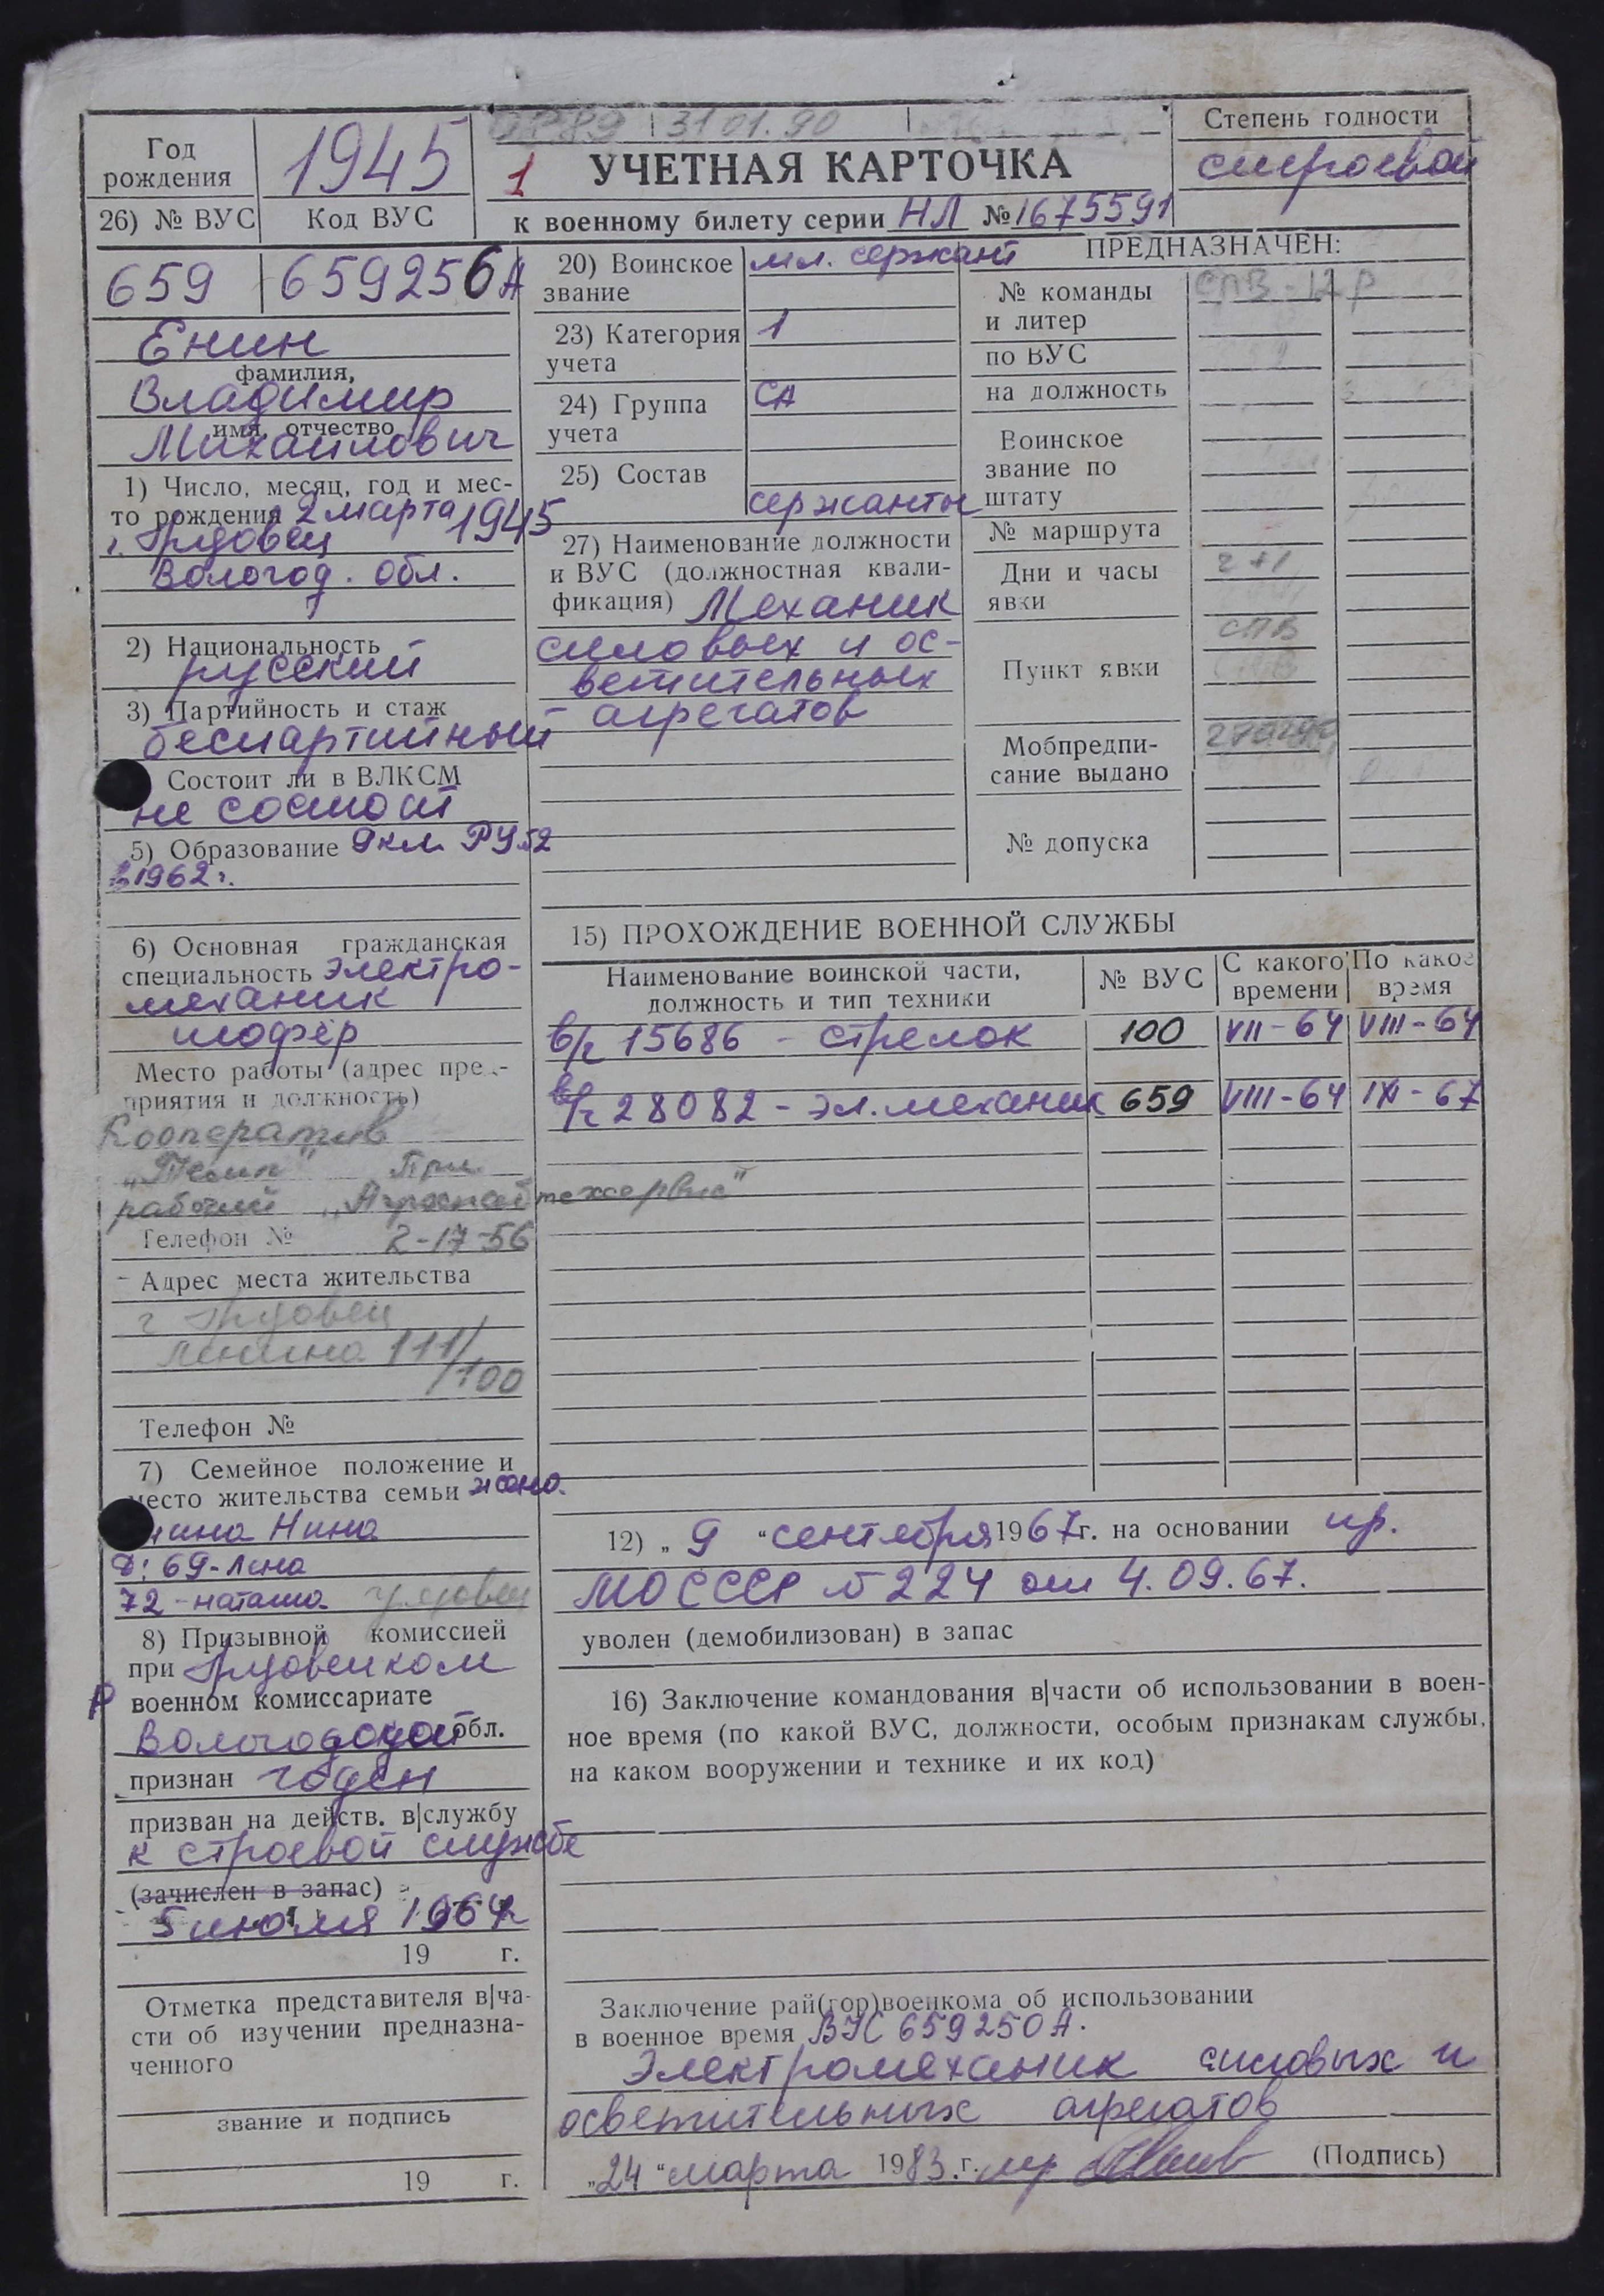 ОР89 31 01.90
Степень годности
строевой
Год рождения
1945
1
УЧЕТНАЯ КАРТОЧКА
26) № ВУС
Код ВУС
к военному билету серии НЛ № 1675591
659
659256А
Енин
фамилия,
Владимир
имя, отчество
Михайлович
1) Число, месяц, год и мес-
то рождения 2 марта 1945
г. Грязовец
Вологод. обл.
2) Национальность
русский
3) Партийность и стаж
беспартийный
Состоит ли в ВЛКСМ
не состоит
5) Образование 9 кл. РУ №2
в 1962 г.
6) Основная гражданская
специальность электро-
механик
шофер
Место работы (адрес пред-
приятия и должность)
Кооператив
„Темп" При
рабочий „Агроснабтехсервис"
Телефон № 2-17-56
Адрес места жительства
г Грязовец
Ленина 111/
/100
Телефон №
7) Семейное положение и
место жительства семьи жена
Нина
Д: 69-Лена
72-Наташа Грязовец
8) Призывной комиссией
при Грязовецком
Р военном комиссариате
Вологодской обл.
признан годен
призван на действ. в|службу
к строевой службе
(зачислен в запас)
5 июля 1964 г
19 г.
Отметка представителя в|ча-
сти об изучении предназна-
ченного
звание и подпись
19 г.
20) Воинское
звание
мл. сержант
23) Категория
учета
1
24) Группа
учета
СА
25) Состав
сержанты
27) Наименование должности
и ВУС (должностная квали-
фикация) Механик
силовых и ос-
ветительных
агрегатов
ПРЕДНАЗНАЧЕН:
№ команды
и литер
СПВ-12 Р
по ВУС
на должность
Воинское
звание по
штату
№ маршрута
Дни и часы
явки
2+1
Пункт явки
СПВ
Мобпредпи-
сание выдано
270290
№ допуска
15) ПРОХОЖДЕНИЕ ВОЕННОЙ СЛУЖБЫ
Наименование воинской части,
должность и тип техники
№ ВУС
С какого
времени
По какое
время
в/ч 15686 - стрелок 100 VII-64 VIII-64
в/ч 28082 - эл.механик 659 VIII-64 IX-67
12) „ 9 " сентября 1967 г. на основании пр.
МО СССР № 224 от 4.09.67.
уволен (демобилизован) в запас
16) Заключение командования в|части об использовании в воен-
ное время (по какой ВУС, должности, особым признакам службы,
на каком вооружении и технике и их код)
Заключение рай(гор)военкома об использовании
в военное время ВУС 659250А.
Электромеханик силовых и
осветительных агрегатов
„24 " марта 1983 г. (Подпись)